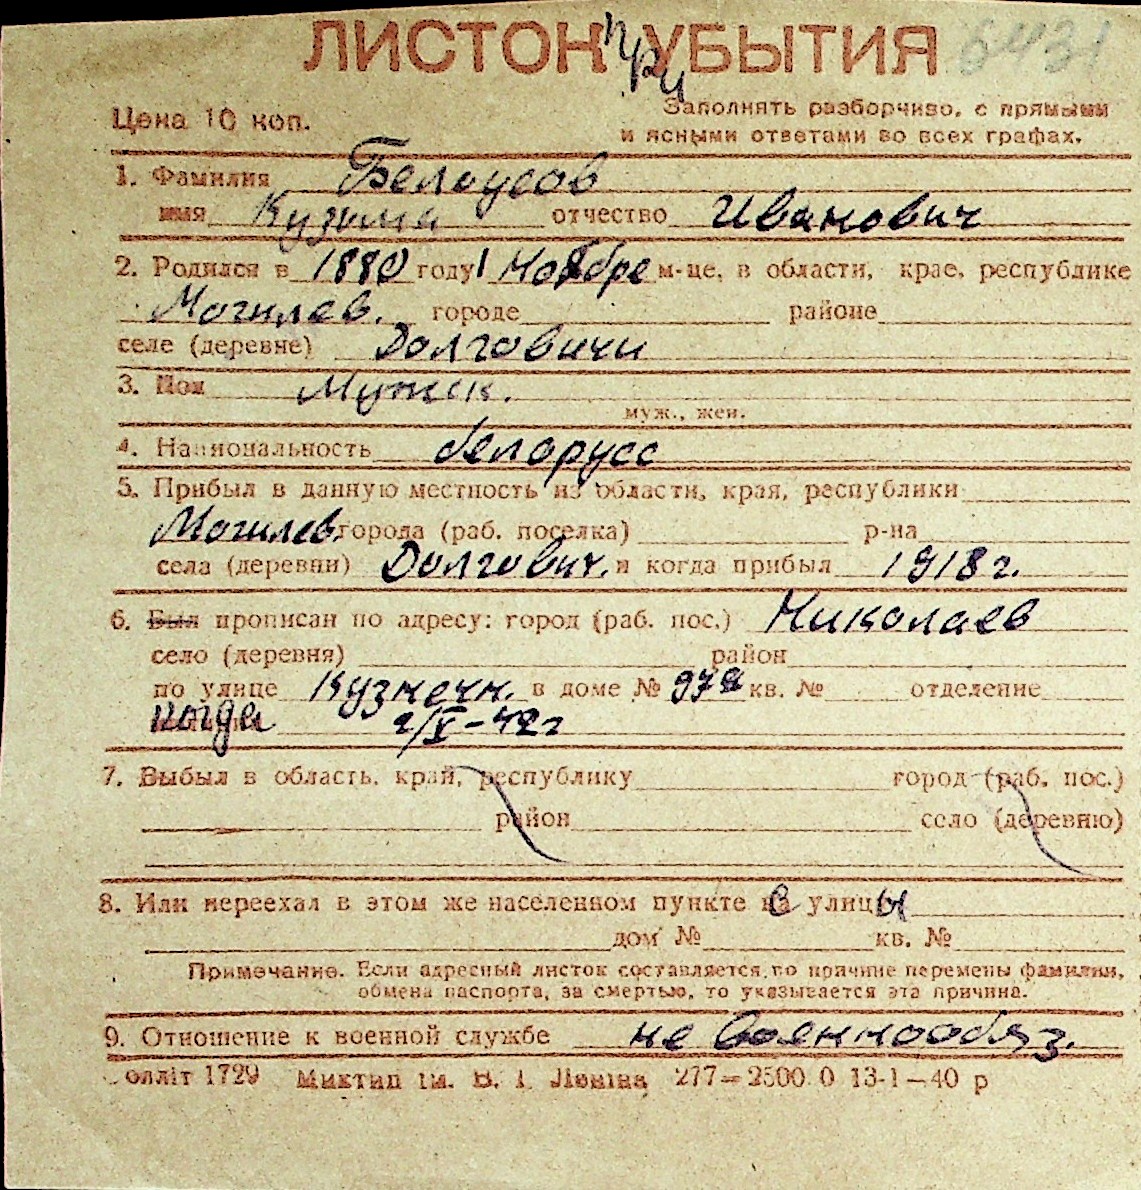 ЛИСТОК при УБЫТИЯ 6431
Цена 10 коп.
Заполнять разборчиво, с прямыми
и ясными ответами во всех графах.
1. Фамилия Белоусов
имя Кузьма отчество Иванович
2. Родился в 1880 году 1 Ноябре м-це, в области, крае, республике
Могилев. городе районе
селе (деревне) Долговичи
3. Пол Мужск.
муж., жен.
4. Национальность белорусс
5. Прибыл в данную местность из области, края, республики
Могилев. города (раб. поселка) р-на
села (деревни) Долгович. и когда прибыл 1918 г.
6. Был прописан по адресу: город (раб. пос.) Николаев
село (деревня) район
по улице Кузнечн. в доме № 97а кв. № отделение
когда 2/X-42 г
7. Выбыл в область, край, республику город (раб. пос.)
район село (деревню)
8. Или переехал в этом же населенном пункте с улицы
дом № кв. №
Примечание. Если адресный листок составляется по причине перемены фамилии,
обмена паспорта, за смертью, то указывается эта причина.
9. Отношение к военной службе не военнообяз.
олліт 1729 Миктип ім. В. І. Леніна 277—2500 0 13-1—40 р